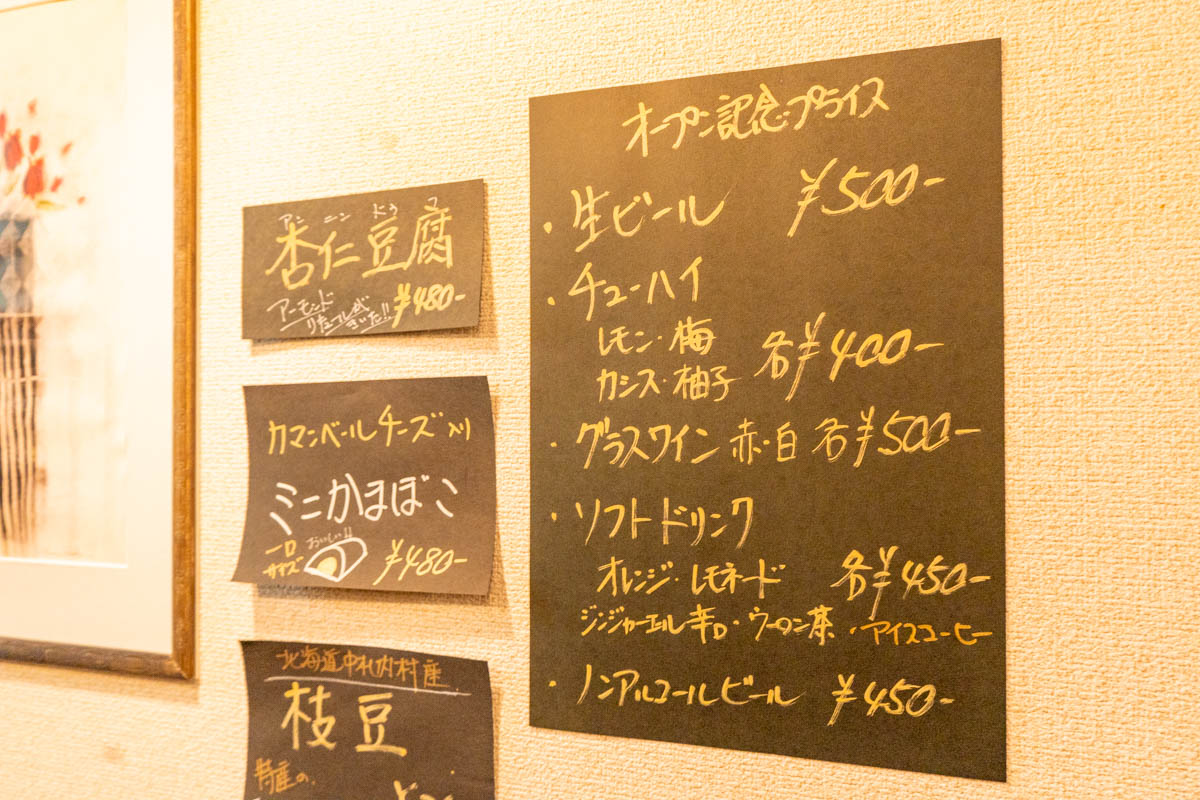 アンニンどうフ
杏仁豆腐
アーモンド
リキュールがきいた!! ¥480-
カマンベールチーズ入り
ミニかまぼこ
一口サイズ おいしい!! ¥480-
北海道中札内村産
枝豆
特産の、
オープン記念プライス
・生ビール ¥500-
・チューハイ
レモン・梅
カシス・柚子 各¥400-
・グラスワイン 赤・白 各¥500-
・ソフトドリンク
オレンジ・レモネード 各¥450-
ジンジャーエール辛口・ウーロン茶・アイスコーヒー
・ノンアルコールビール ¥450-